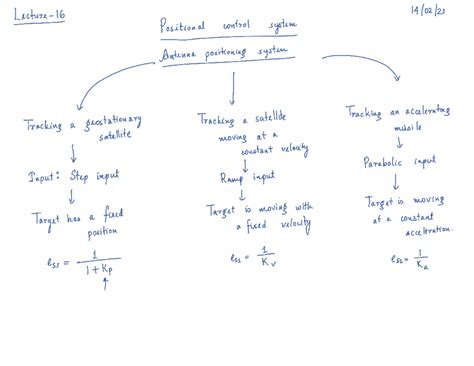 Lecture-16
14/02/21
Positional control system
Antenna positioning system
Tracking a geostationary
satellite
Input: Step input
Target has a fixed
position
ess = 1 / (1+Kp)
Tracking a satellite
moving at a
constant velocity
Ramp input
Target is moving with
a fixed velocity
ess = 1 / Kv
Tracking an accelerating
missile
Parabolic input
Target is moving
at a constant
acceleration.
ess = 1 / Ka